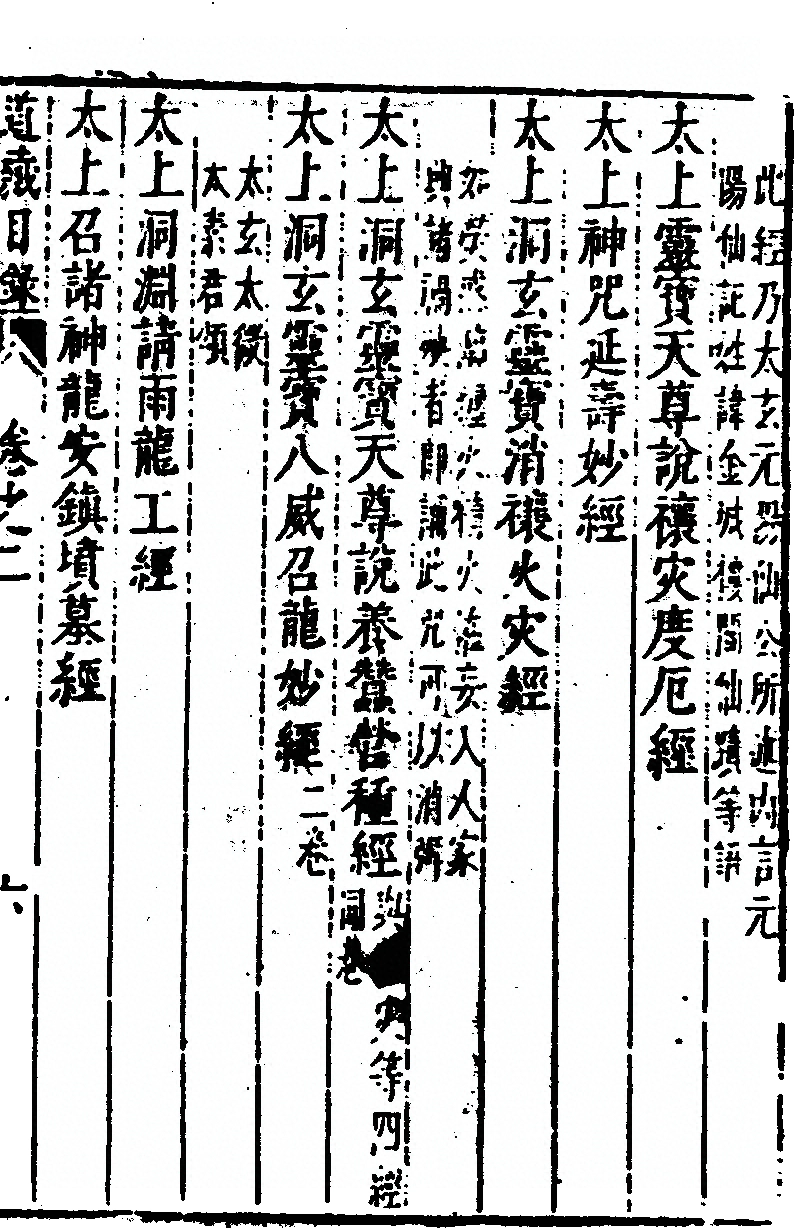 此經乃太玄元那仙公所述内言元
陽仙託姓諱金城禳閣仙蹟等語
太上靈寶天尊說禳灾度厄經
太上神咒延壽妙經
太上洞玄靈寶消禳火灾經
如熒或當纏火精火妄入人家
與諸禍者即誦此咒可以消弭
太上洞玄靈寶天尊說養蠶營種經
與等四經
同卷
太上洞玄靈寶八威召龍妙經二卷
太玄太微
太素君頌
太上洞淵請雨龍王經
太上召諸神龍安鎮墳墓經
道藏目錄 卷之二 六